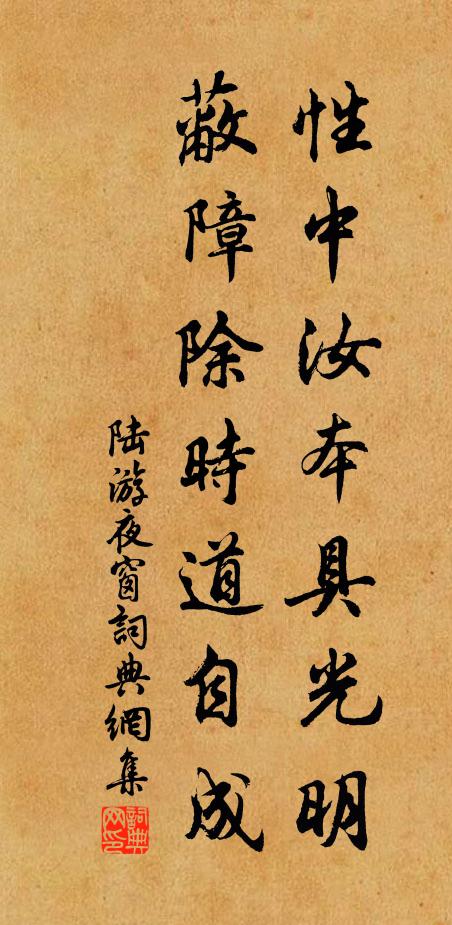 性中汝本具光明
蔽障除時道自成
陆游夜窗詞典網集
詞典
网印